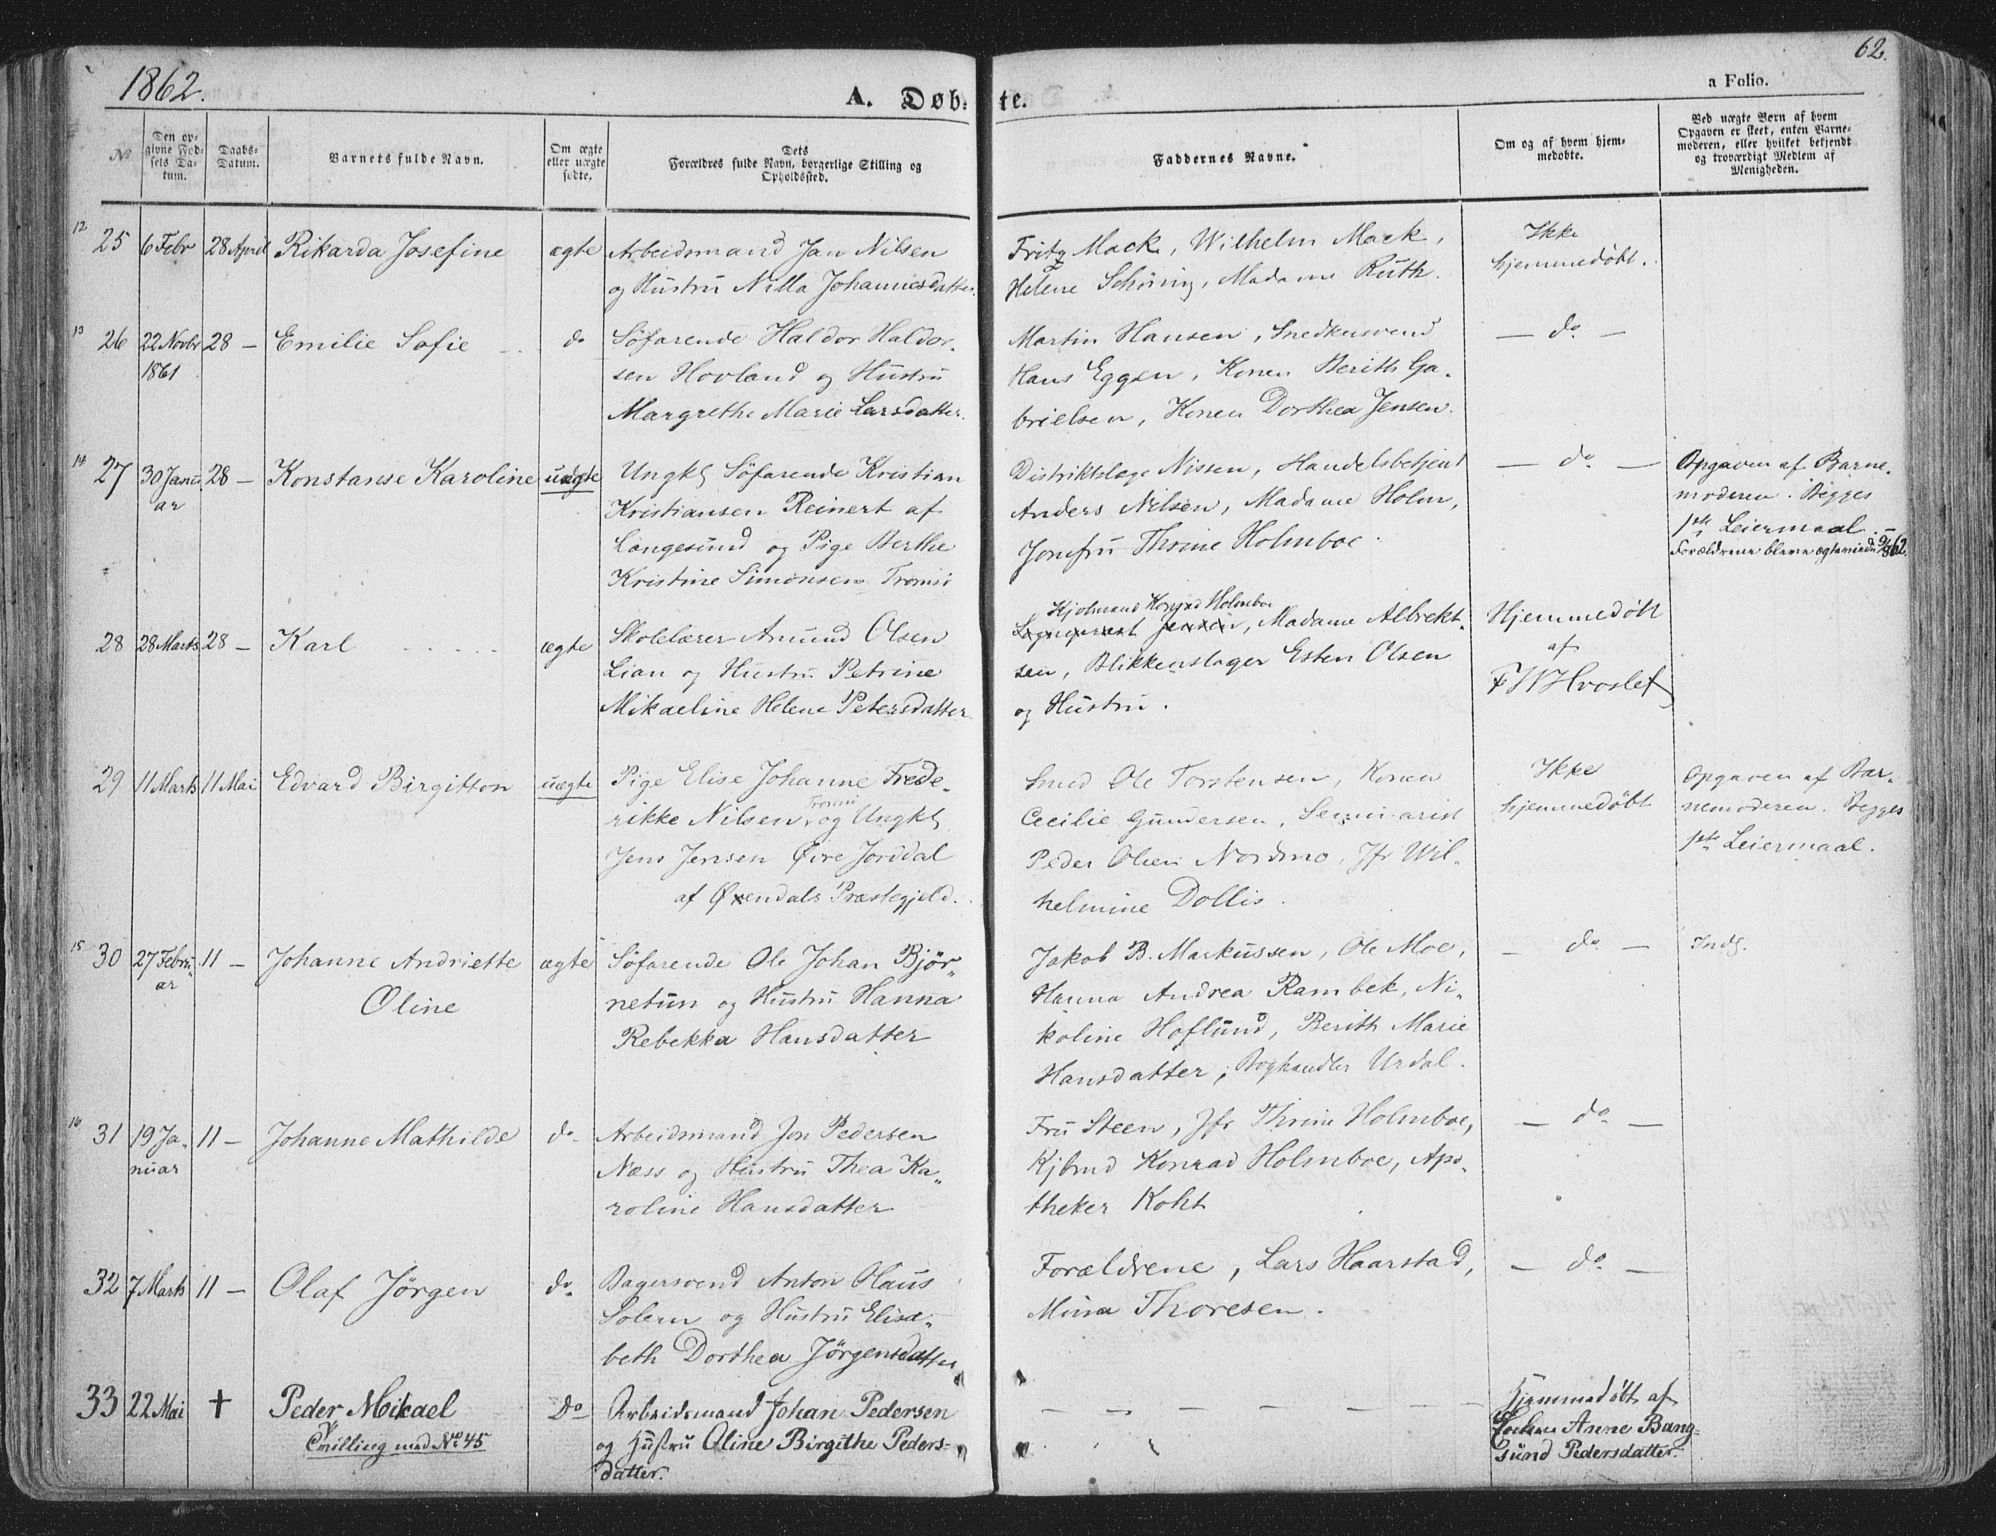 1862.
62.
A. Døbte.
a Folio.
No
Den opgivne Fødsels Datum.
Daabs-Datum.
Barnets fulde Navn.
Om ægte eller uægte fødte.
Dets Forældres fulde Navn, borgerlige Stilling og Opholdssted.
Faddernes Navne.
Om og af hvem hjemmedøbte.
Ved uægte Børn af hvem Opgaven er skeet, enten Barnemoderen, eller hvilket bekjendt og troværdigt Medlem af Menigheden.
12 25 6 Febr 28 April Rikarda Josefine ægte Arbeidsmand Jan Nilsen
og Hustru Nilla Johannesdatter.
Fritz Mack, Wilhelm Mack,
Helene Schöning, Madame Ruth.
Ikke
hjemmedøbt.
13 26 22 Novbr 28 — Emilie Sofie do Söfarende Haldor Haldor-
1861
sen Hovland og Hustru
Margrethe Marie Larsdatter.
Martin Hansen, Snedkersvend
Hans Eggen, Konen Berith Ga-
brielsen, Konen Dorthea Jensen.
— do —
14 27 30 Janu 28 — Konstanse Karoline uægte Ungkl Söfarende Kristian
ar
Kristiansen Reinert af
Langesund og Pige Berthe
Kristine Simonsen Tromsö
Distriktslæge Nissen, Handelsbetjent
Anders Nilsen, Madame Holm,
Jomfru Thrine Holmboe.
— do —
Opgaven af Barne-
moderen. Begges
1ste Leiermaal.
Forældrene bleve ægteviede
28 28 Marts 28 — Karl ægte Skolelærer Amund Olsen
Lian og Hustru Petrine
Mikaeline Helene Petersdatter
Kjøbmand Konrad Holmboe
Jensen, Madame Albrekt-
sen, Blikkenslager Esten Olsen
og Hustru.
Hjemmedöbt
af
F W Hvoslef
29 11 Marts 11 Mai Edvard Birgitton uægte Pige Elise Johanne Frede-
rikke Nilsen, Tromsö og Ungkl
Jens Jensen Øvre Jorddal
af Øxendals Præstegjeld.
Smed Ole Torstensen, Konen
Cecilie Gundersen, Seminarist
Peder Olsen Nordmo, Jfr Wil-
helmine Dollis.
Ikke
hjemmedöbt
Opgaven af Bar-
nemoderen. Begges
1ste Leiermaal.
15 30 27 Febru 11 — Johanne Andriette ægte Söfarende Ole Johan Bjør-
ar
Oline
netun og Hustru Hanna
Rebekka Hansdatter
Jakob B. Markussen, Ole Moe,
Hanna Andrea Rambek, Ni-
koline Hoflund, Berith Marie
Hansdatter, Boghandler Urdal.
— do —
Indf.
16 31 19 Ja- 11 — Johanne Mathilde do Arbeidsmand Jon Pedersen
nuar
Næss og Hustru Thea Ka-
roline Hansdatter
Fru Steen, Jfr Thrine Holmboe,
Kjbmd Konrad Holmboe, Apo-
theker Koht
— do —
32 7 Marts 11 — Olaf Jörgen do Bagersvend Anton Olaus
Solem og Hustru Elisa-
beth Dorthea Jörgensdatter
Forældrene, Lars Haarstad,
Mina Thoresen.
— do —
33 22 Mai † Peder Mikael Do Arbeidsmand Johan Pedersen
Tvilling med No 45
og Hustru Oline Birgithe Peders-
datter.
Hjemmedöbt af
Anne Bang-
sund Pedersdatter.